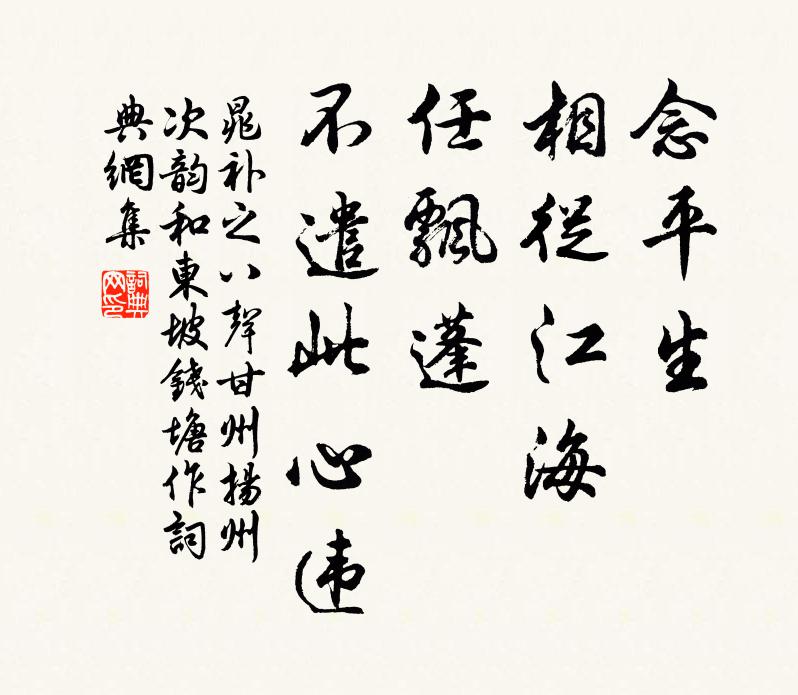 念平生
相從江海
任飄蓬
不遣此心违
晁补之八聲甘州揚州
次韵和東坡錢塘作詞
典網集
詞典
网印